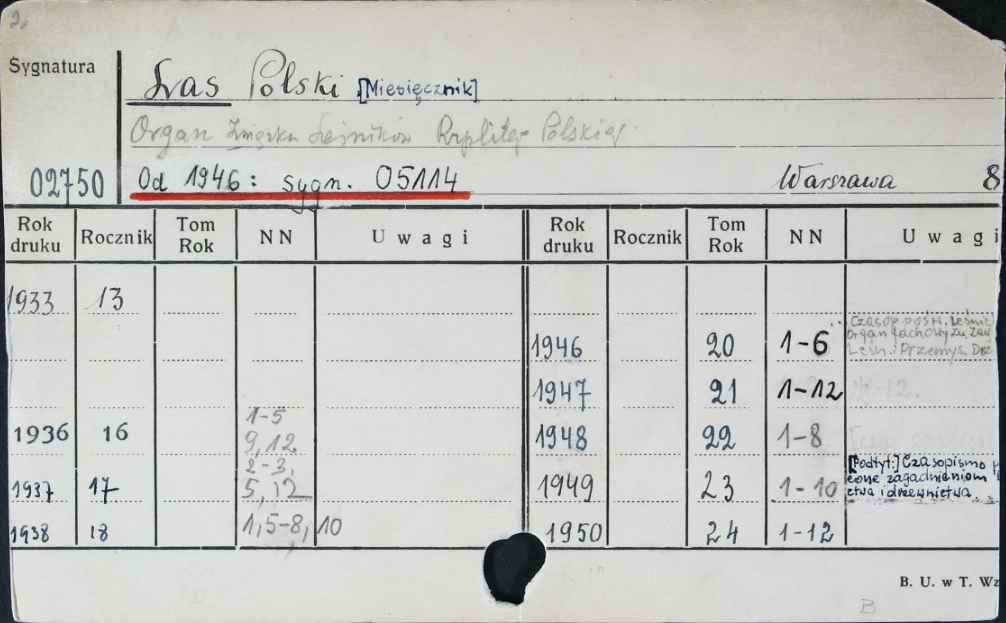 2.
Sygnatura
Las Polski [Miesięcznik]
Organ Związku Leśników Rzplitej Polskiej
02750 Od 1946: sygn. 05114 Warszawa 8
Rok druku Rocznik Tom Rok NN Uwagi Rok druku Rocznik Tom Rok NN Uwagi
1933 13
Czasop. pośw. Leśnic
Organ fachowy Zw. Zaw
1946 20 1-6 Leśn. i Przemysł Drz
1947 21 1-12
1936 16 1-5 9,12. 1948 22 1-8
1937 17 2-3, 5,12 1949 23 1-10 [Podtyt:] Czasopismo
cone zagadnieniom
ctwa i drzewnictwa
1938 18 1,5-8, 10 1950 24 1-12
B. U. w T. Wz
B